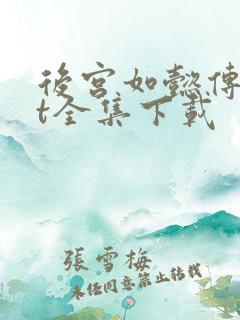 後宮如懿傳
t全集下載
張雪梅
未经同意禁止转载